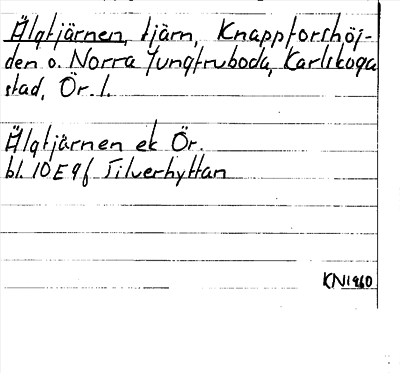 Älgtjärnen, tjärn, Knappforshöj-
den o. Norra Jungfruboda, Karlskoga
stad, Ör. l.
Älgtjärnen ek Ör.
bl. 10E 9f Silverhyttan
KN1960